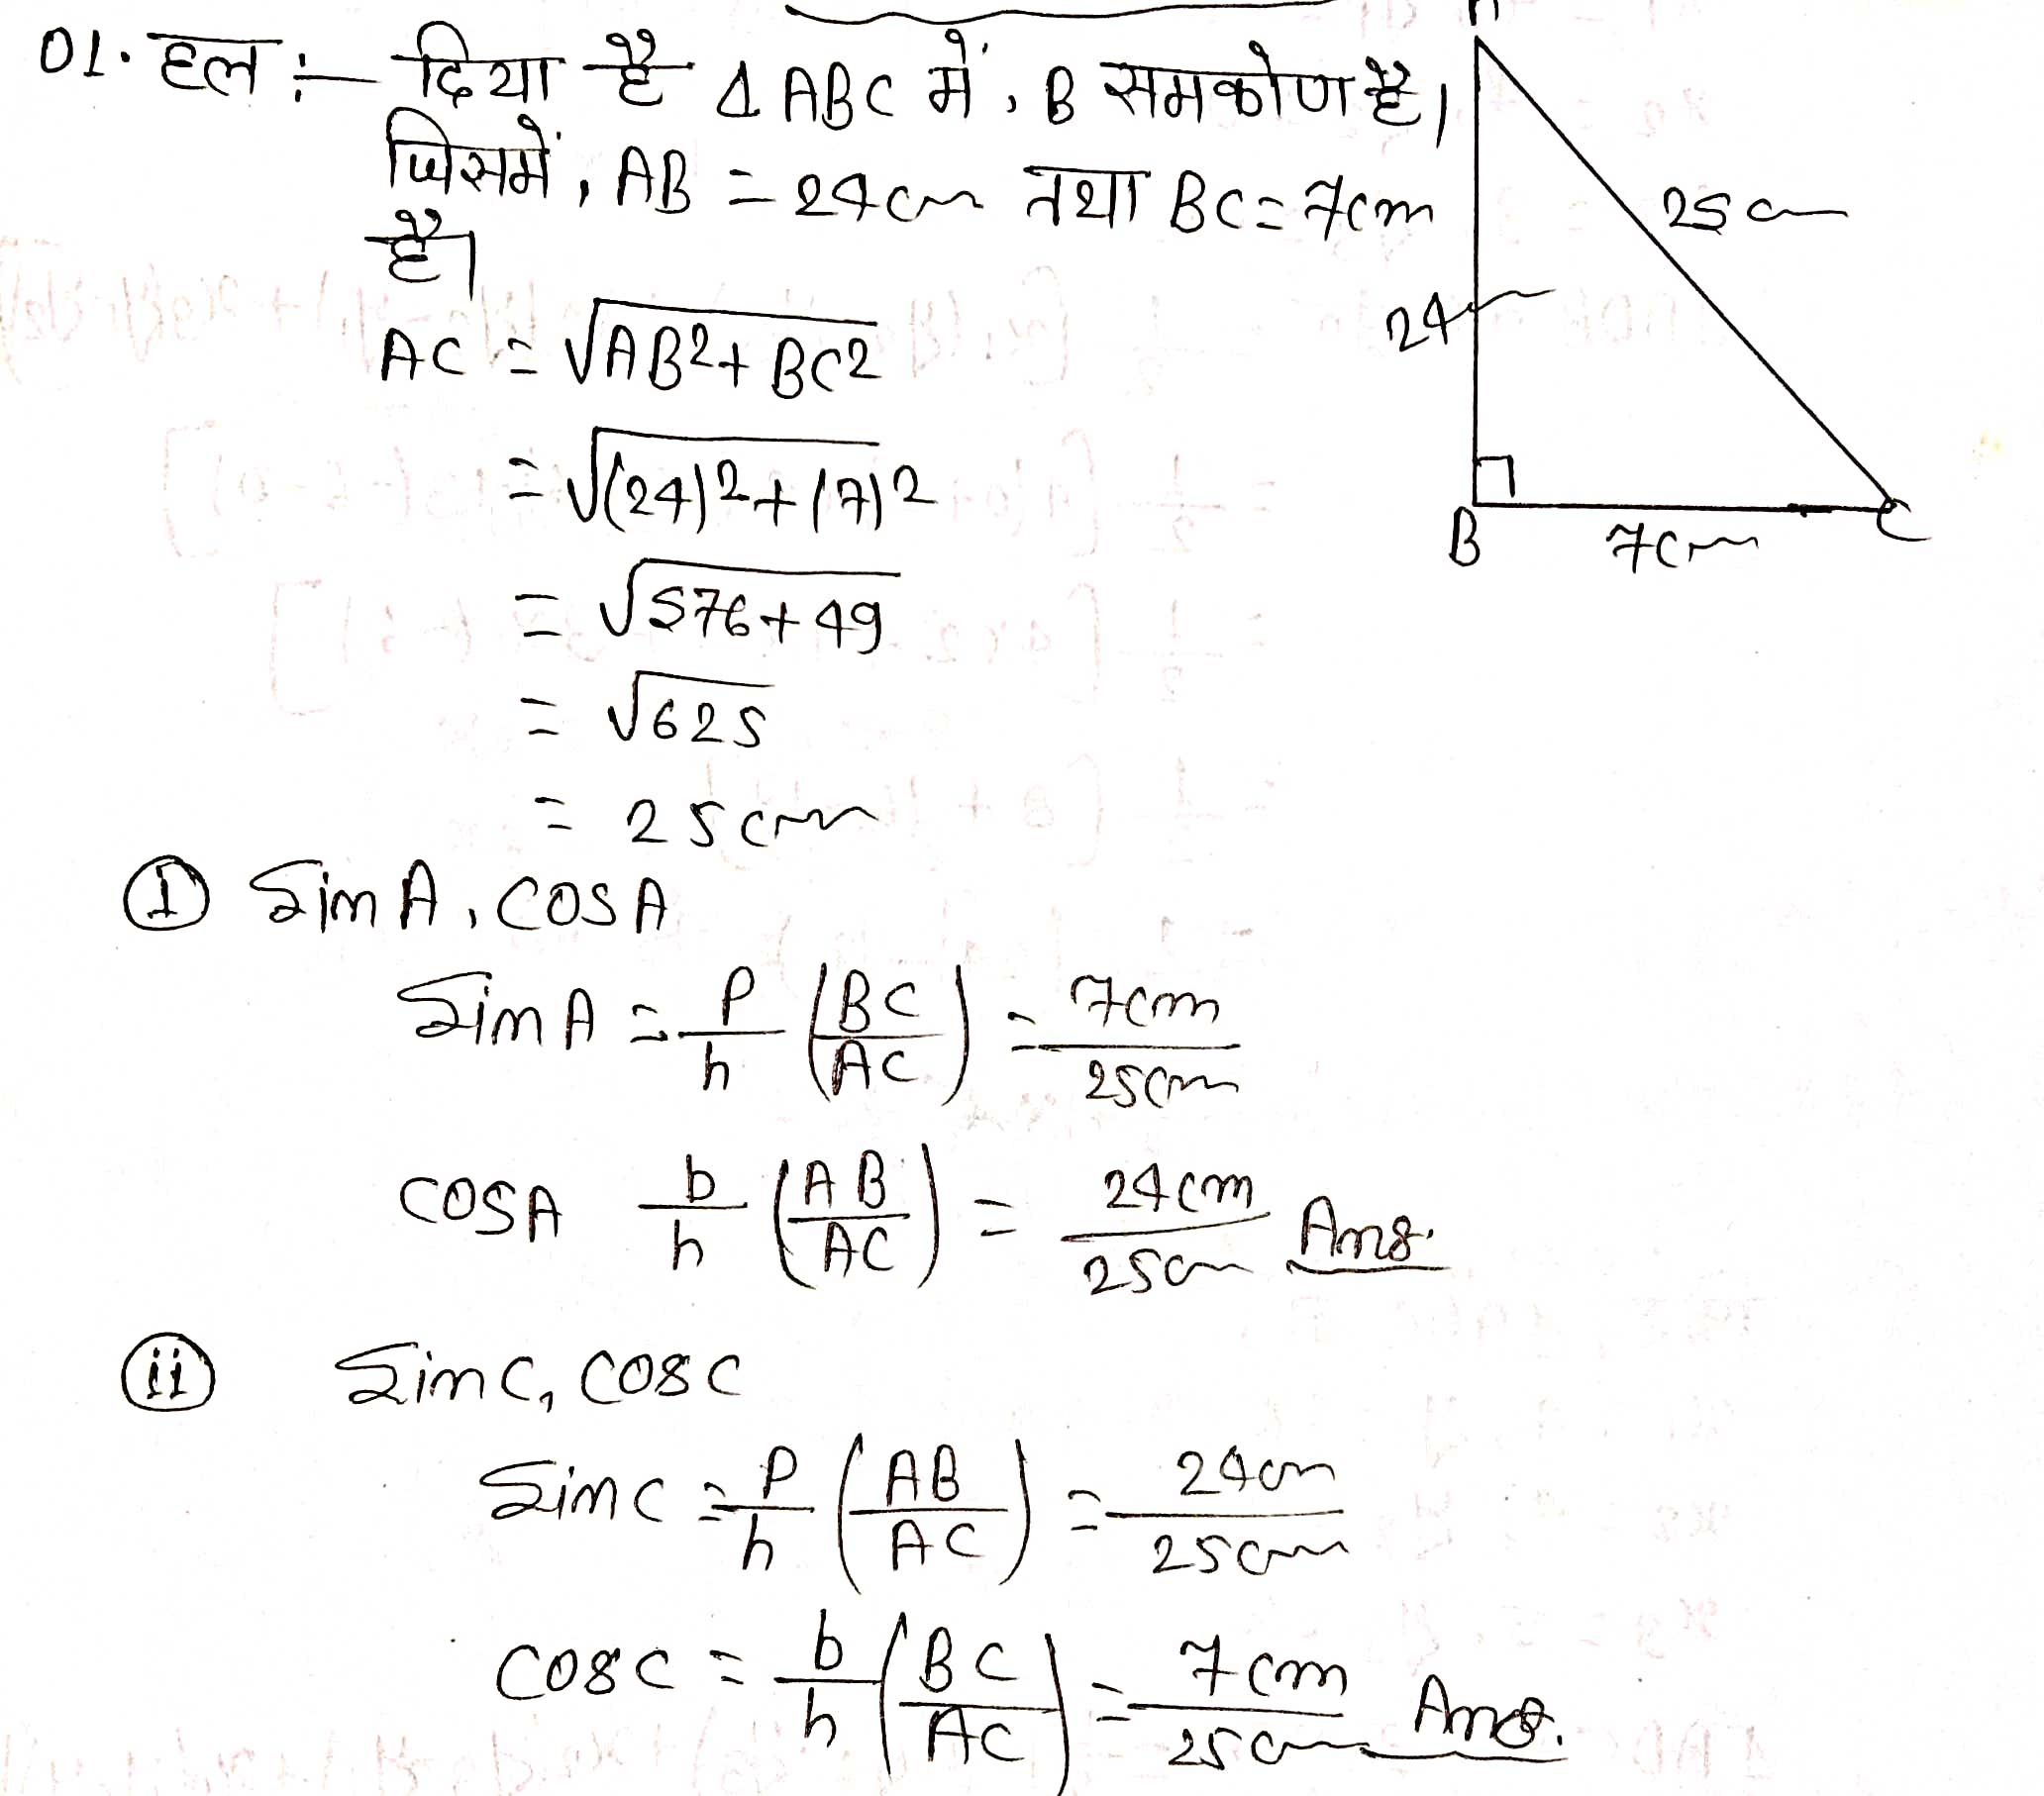 01. हल :- दिया है Δ ABC में, B समकोण है।
जिसमें, AB = 24cm तथा BC = 7cm
है।
AC = √AB2 + BC2
= √(24)2 + (7)2
= √576 + 49
= √625
= 25cm
25cm
24
B
7cm
C
① Sin A, COS A
Sin A = P/h (BC/AC) = 7cm/25cm
COSA b/h (AB/AC) = 24cm/25cm Ans.
(ii) Sin C, COS C
Sin C = P/h (AB/AC) = 24cm/25cm
COS C = b/h (BC/AC) = 7cm/25cm Ans.